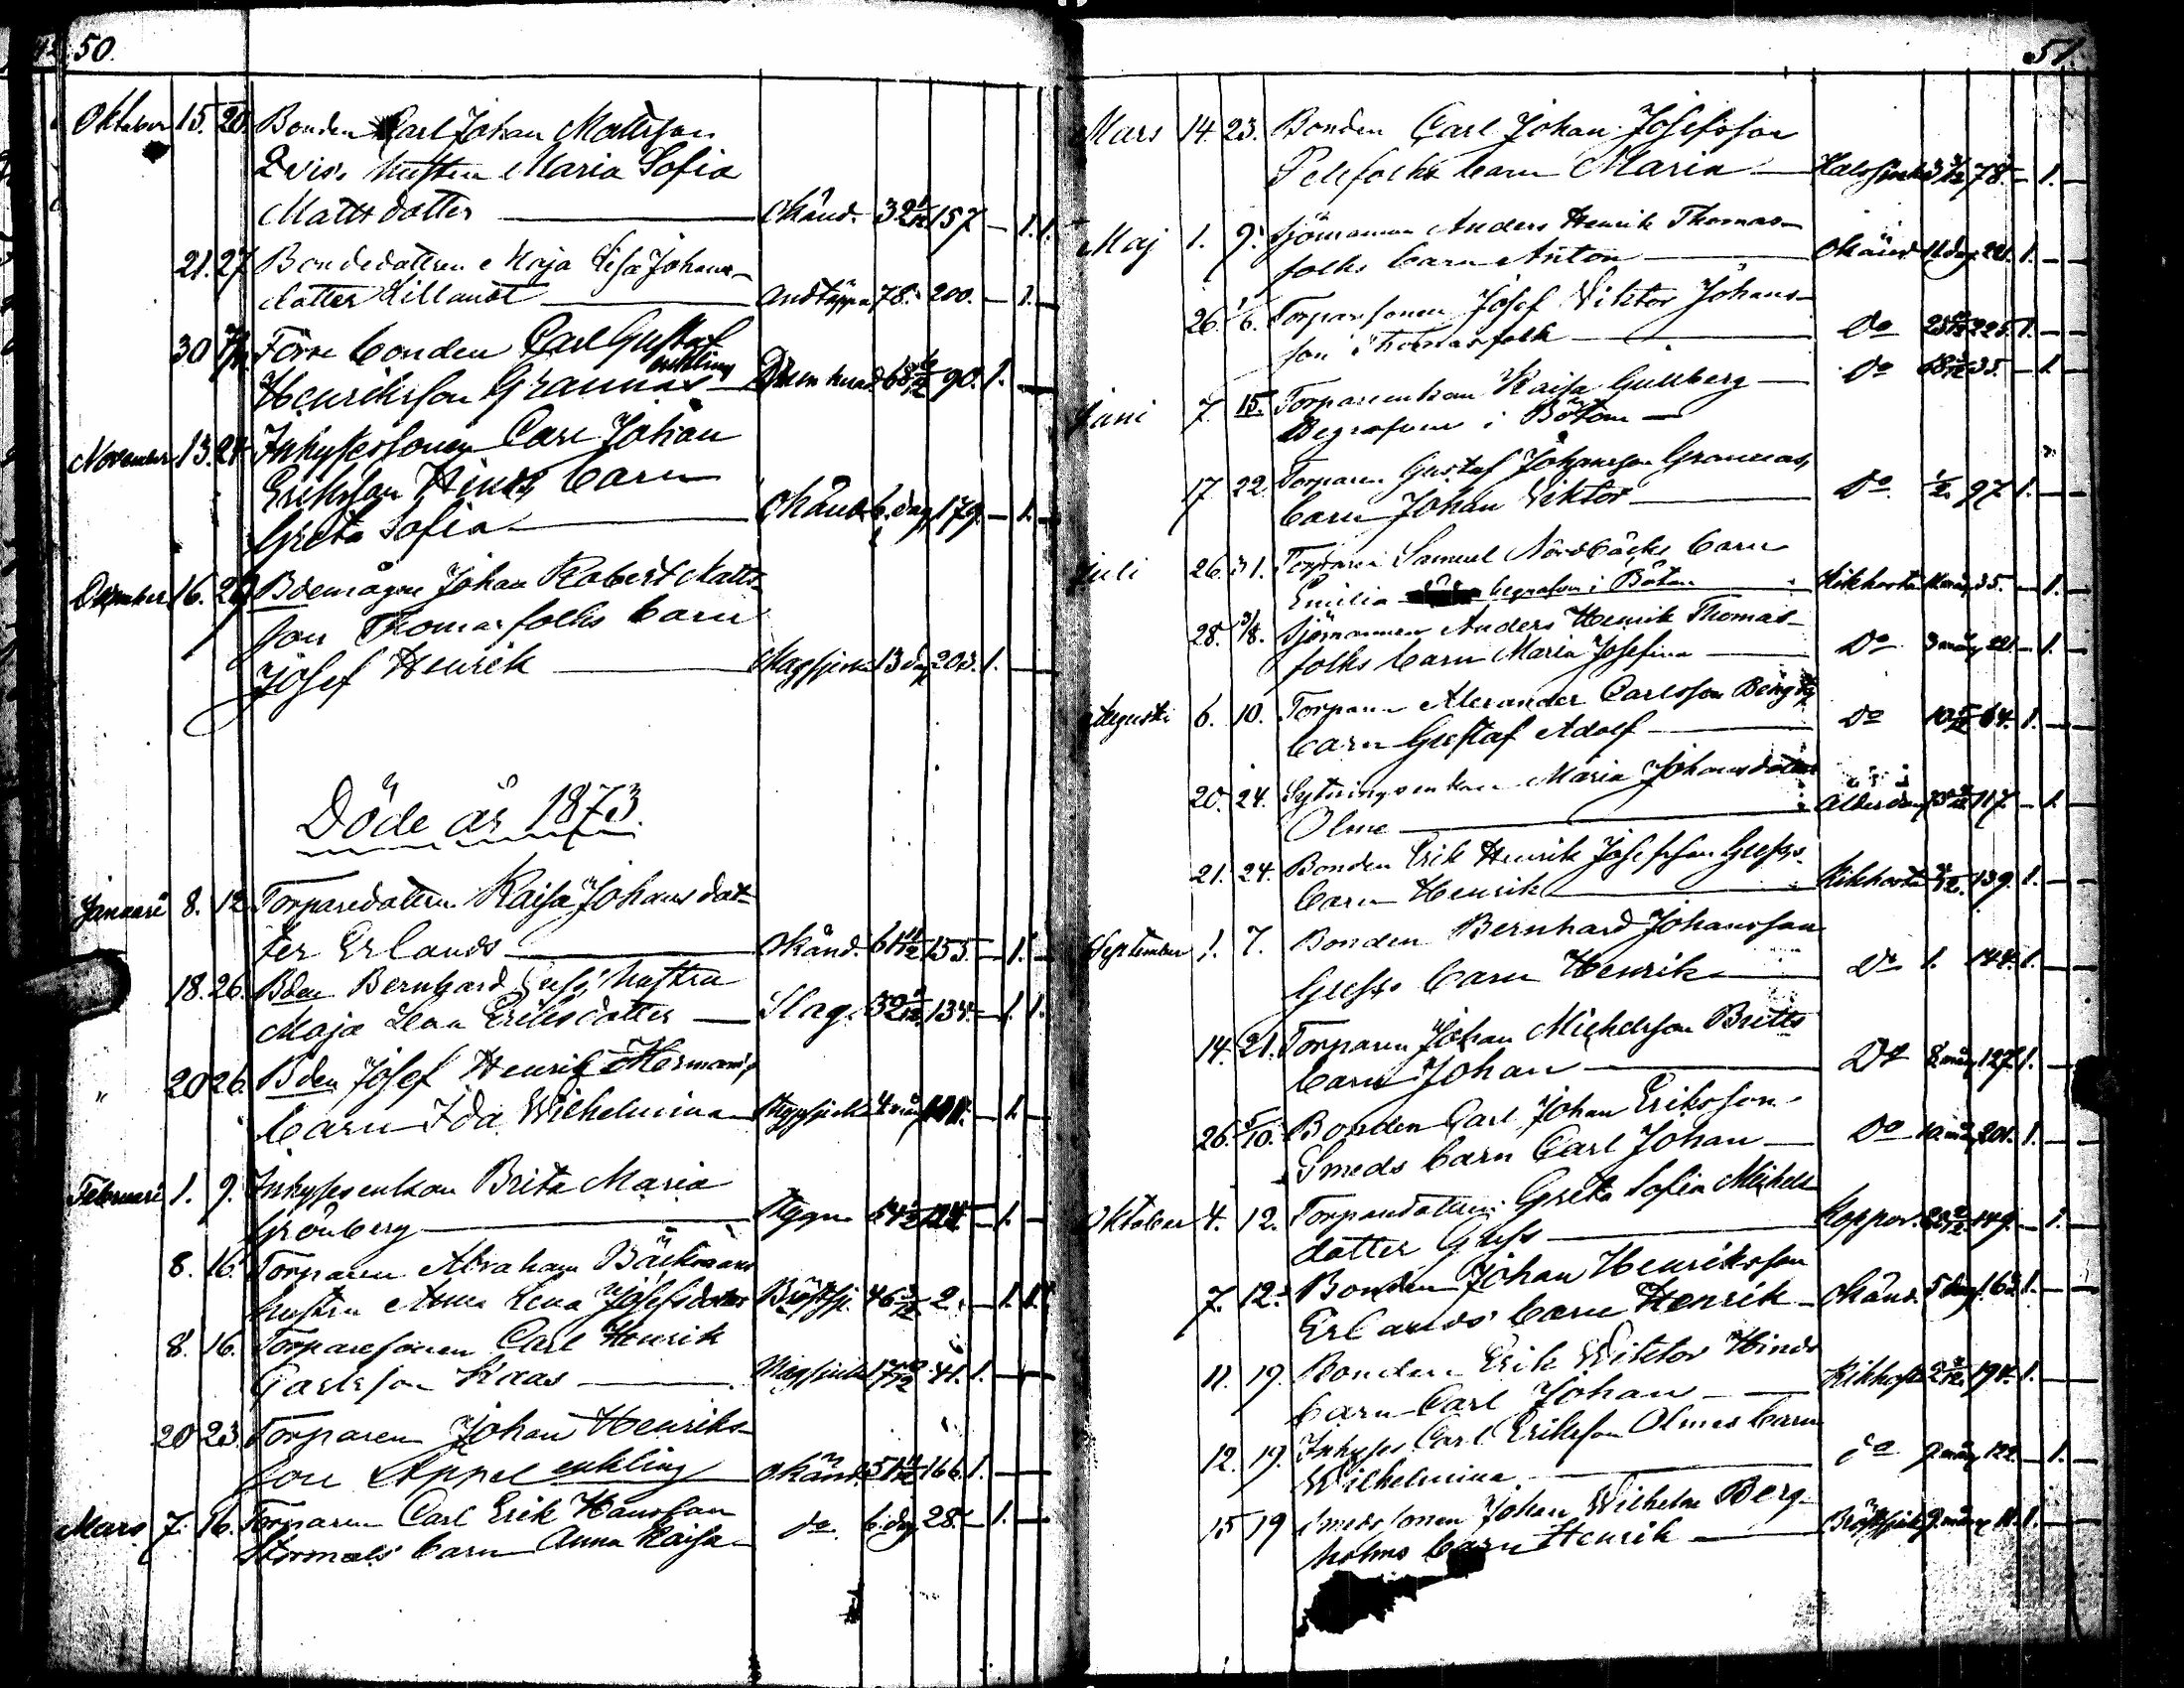 50.
Oktober 15. 20. Bonden Carl Johan Mattsson
Qvis. hustru Maria Sofia
Mattsdotter — Okänd. 32 1/12 157 — 1. 1.
21. 27 Bondedottren Maja Lisa Johans-
dotter Lillandt — Andtäppa 78. 200. — 1. —
30 Förre bonden Carl Gustaf
enkling
Henriksson Grannas 68 90. 1. —
November 13. 24. Inhysessonen Carl Johan
Eriksson Hinds barn
Greta Sofia — Okänd 6. dag. 179. — 1. —
December 16. 26. Bdemågen Johan Robert Matts-
son Thomasfolks barn
Josef Henrik — Magsjuka 13 dag 203. 1. —
Döde år 1873.
Januari 8. 12 Torparedottren Kaisa Johansdot-
ter Erlands — Okänd. 61 11/12 155. — 1. —
18. 26. Bden Bernhard Guss' hustru
Maja Lena Eriksdotter — Slag. 32 134. — 1. 1.
" 20 26. Bden Josef Henrik Hermans
barn Ida Wilhelmina 4 mån — 1. —
Februari 1. 9. Inhysesenkan Brita Maria
Grönberg — 54 — 1. —
8. 16. Torparen Abraham Bäckmans
hustru Anna Lena Josefsdotter Bröstsj. 46 3/12 2. — 1. 1.
8. 16. Torparesonen Carl Henrik
Carlsson Kaas — Magsjuka 17 41. 1. —
20 23. Torparen Johan Henriks-
son Appel enkling — Okänd. 51 166. 1. —
Mars 7. 16. Torparen Carl Erik Hansson
Stormols barn Anna Kaisa — do 6. dag 28. — 1. —
51.
Mars 14. 23. Bonden Carl Johan Josefsson
Pellfolks barn Maria — Halssjuka 3 78. — 1. —
Maj 1. 9. Sjömannen Anders Henrik Thomas-
folks barn Anton — Okänd 11 dag. 221. 1. —
26. 1/6. Torparsonen Josef Viktor Johans-
son Thomasfolk — Do 225. 1. —
Juni 7. 15. Torpareenkan Kaisa Gullberg — Do 68 35. — 1
Begrafven i Bötom —
17 22. Torparen Gustaf Johansson Grannas,
barn Johan Viktor — Do 1/2. 97 1. —
Juli 26. 31. Torparen Samuel Nordbäcks barn
Emilia begrafven i Bötom Kikhosta 35. — 1. —
28. 3/8. Sjömannen Anders Henrik Thomas-
folks barn Maria Josefina — Do 3 mån 221. — 1. —
Augusti 6. 10. Torparen Alexander Carlsson Bergs
barn Gustaf Adolf — Do 10 64. 1. —
20. 24. Sytningsenkan Maria Johansdotter
Olme — Ålderdom 117. — 1.
21. 24. Bonden Erik Henrik Josefsson Guss
barn Henrik — Kikhosta 139. 1. —
September 1. 7. Bonden Bernhard Johansson
Guss barn Henrik — Do 1. 144. 1. —
14. 21. Torparen Johan Michelsson Britts
barn Johan — Do 8 mån 127. 1. —
26. 5/10. Bonden Carl Johan Eriksson
Smeds barn Carl Johan — Do 10 mån 201. 1. —
Oktober 4. 12. Torparedottren Greta Sofia Michels-
dotter Guss — Koppor. 149. — 1.
7. 12. Bonden Johan Henriksson
Erlands' barn Henrik — Okänd. 5 dag. 162. 1. —
11. 19. Bonden Erik Wiktor Hinds
barn Carl Johan — Kikhosta 2 194. 1. —
12. 19. Inhyses Carl Eriksson Olmes barn
Wilhelmina — do 9 mån 122. — 1. —
15 19 Smedssonen Johan Wilhelm Berg-
holms barn Henrik — Bröstsjuka 9 mån 11. 1. —